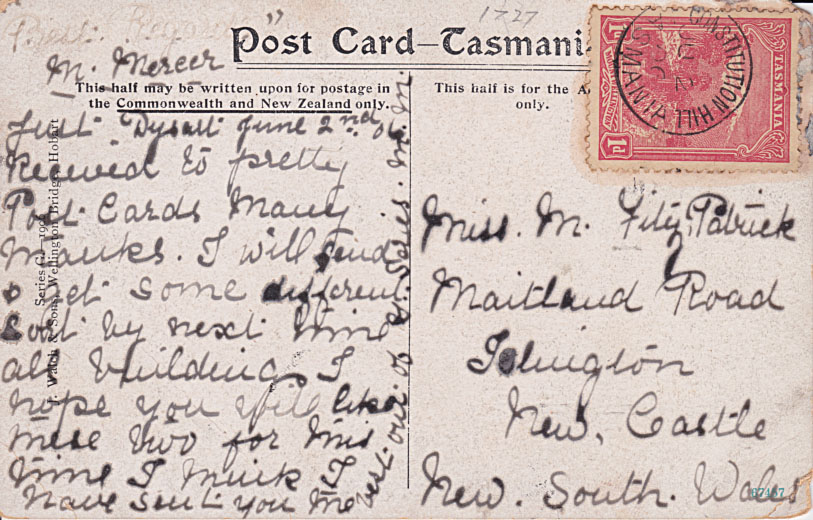 1727
Best Regards
M. Mercer
Post Card—Tasmani
This half may be written upon for postage in
the Commonwealth and New Zealand only.
This half is for the A
only.
CONSTITUTION HILL
TASMANIA
TASMANIA
1d 1d
Dysart June 2nd 06
Received to pretty
Post Cards Many
Thanks. I will send
& get some different
sort by next time
all buildings I
hope you will like
these two for this
time I think I
have sent you the
best out of G. Series. M. M.
Series G.—1906
J. Walch & Sons, Wellington Bridge, Hobart
Miss. M. Fitz Patrick
Maitland Road
Islington
New, Castle
New. South. Wales